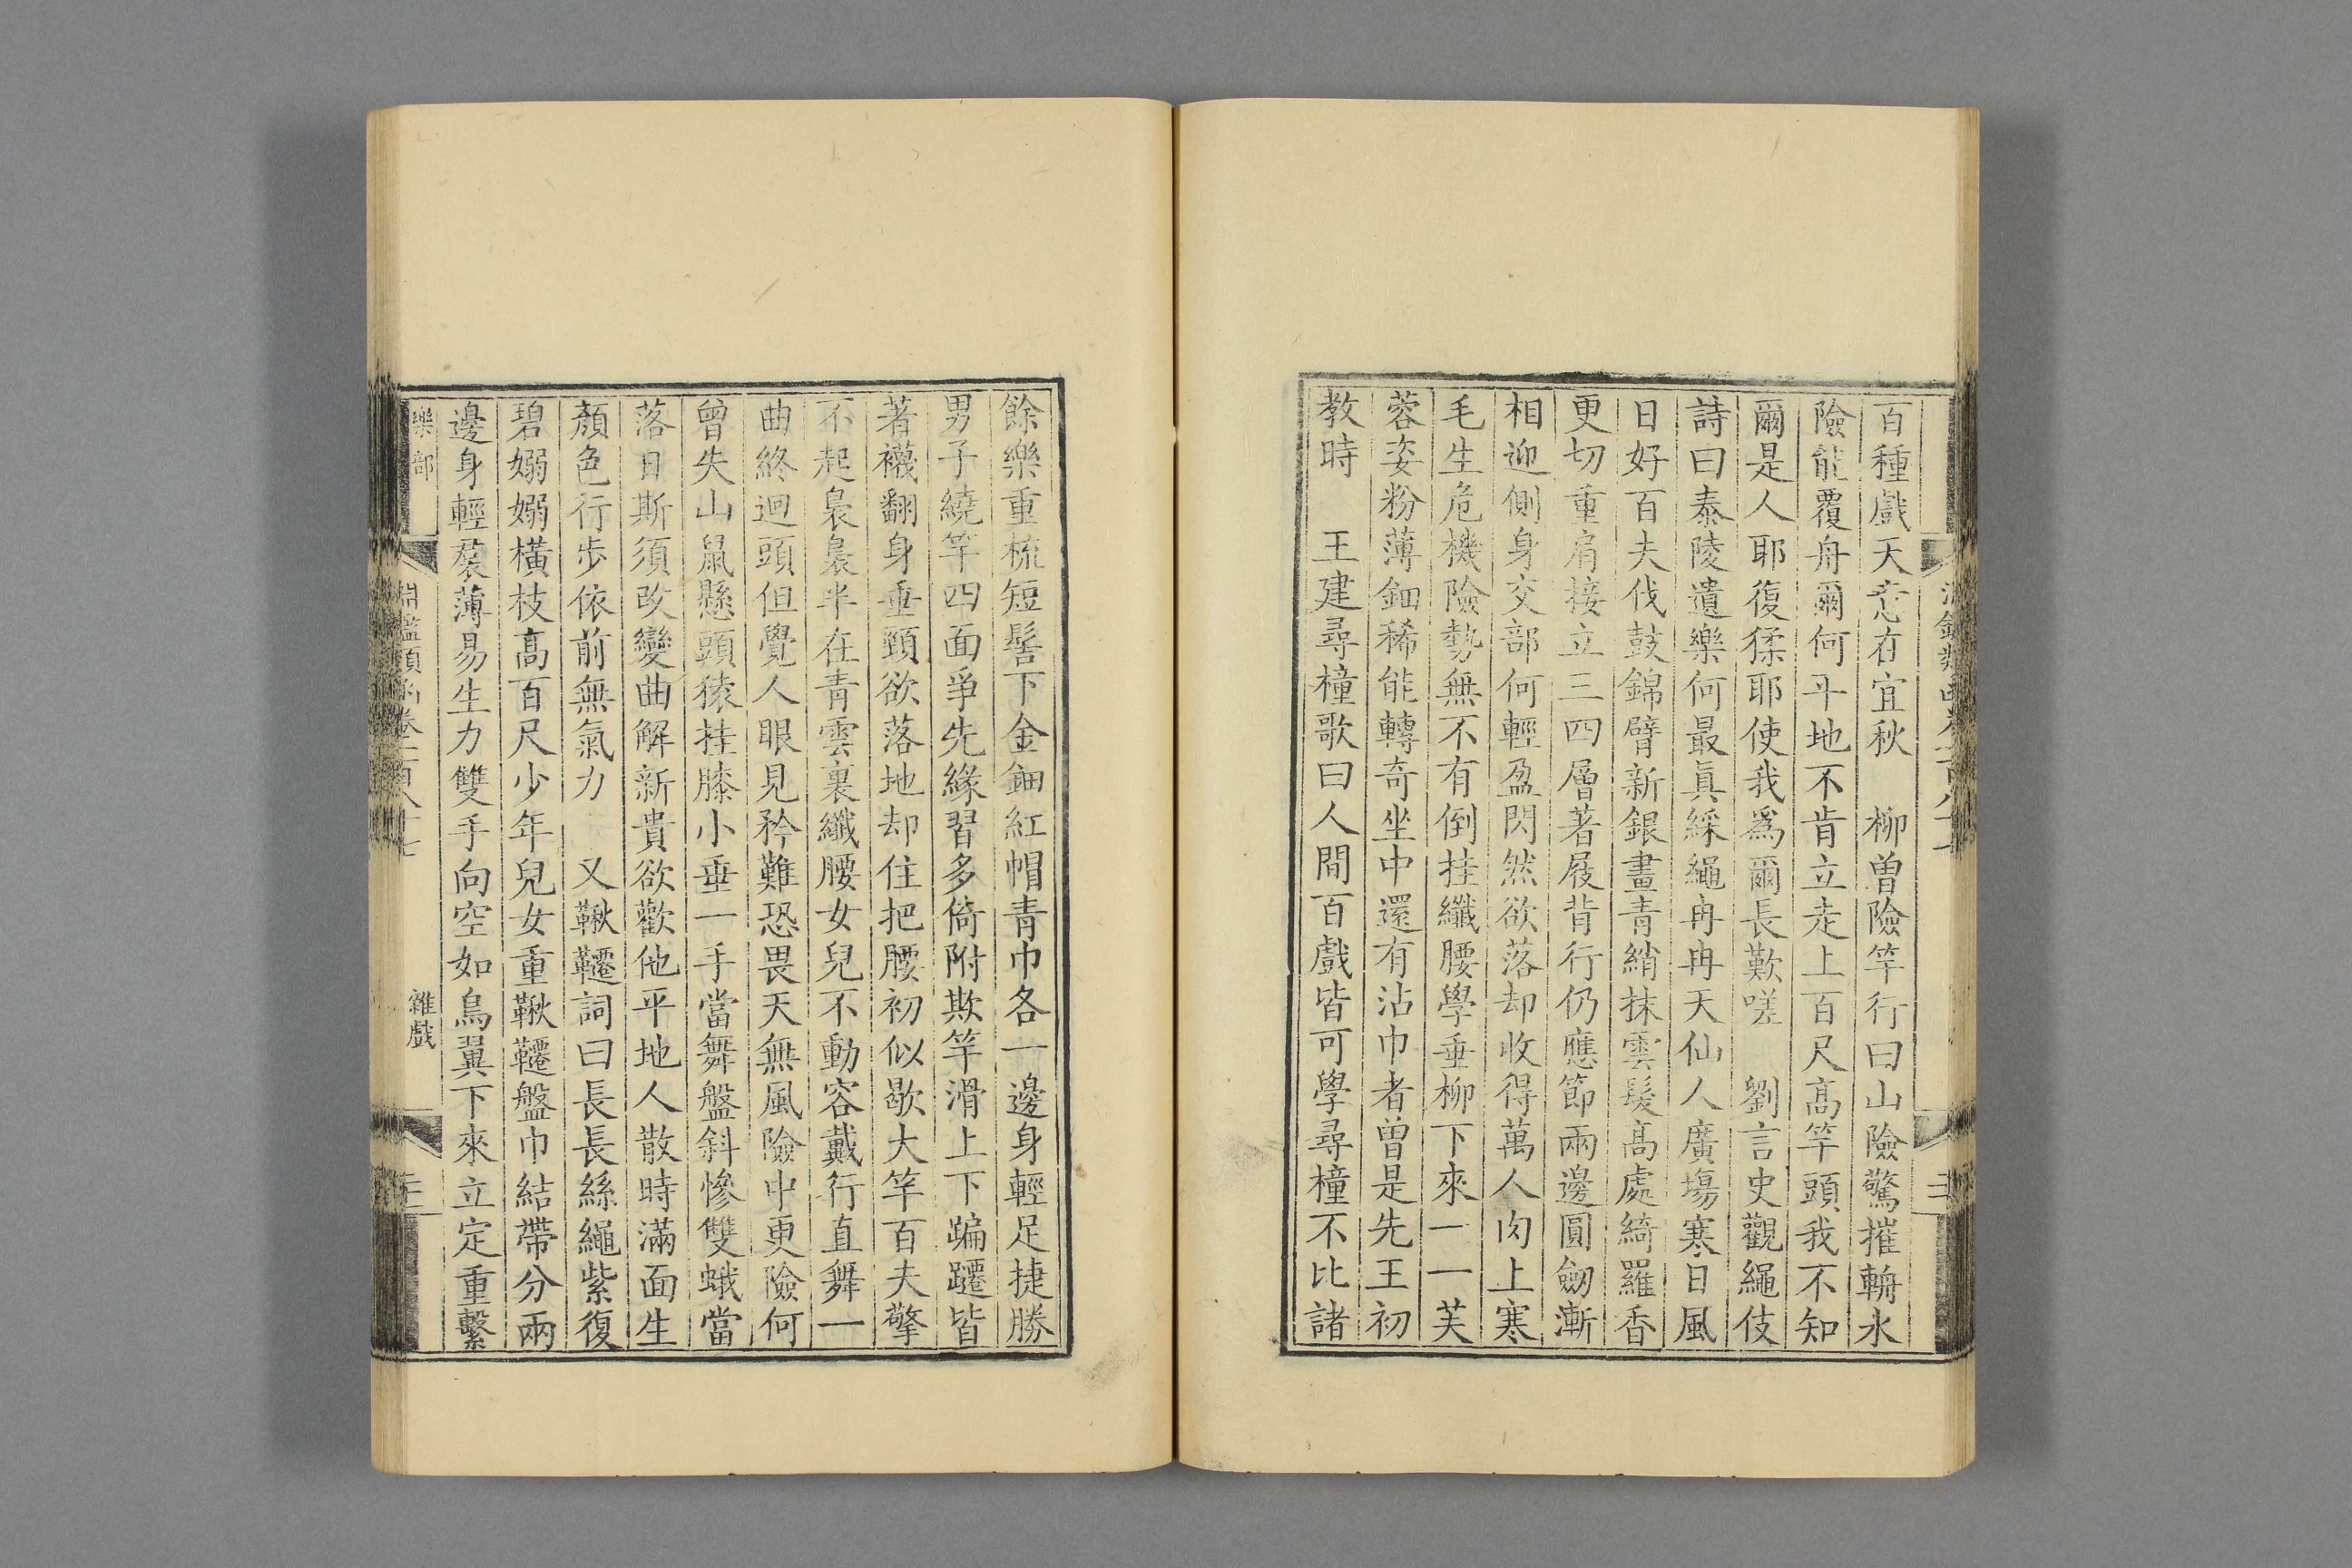 百種戲天意在宜秋　柳曾險竿行曰山險驚摧輈水
險能覆舟爾何平地不肯立走上百尺高竿頭我不知
爾是人耶復猱耶使我爲爾長歎嗟　劉言史觀繩伎
詩曰泰陵遺樂何最眞綵繩冉冉天仙人廣塲寒日風
日好百夫伐鼓錦臂新銀畫青綃抹雲髮高處綺羅香
更切重肩接立三四層著屐背行仍應節兩邊圓劒漸
相迎側身交部何輕盈閃然欲落却收得萬人肉上寒
毛生危機險勢無不有倒挂纖腰學垂柳下來一一芙
蓉姿粉薄鈿稀能轉奇坐中還有沾巾者曾是先王初
教時　王建尋橦歌曰人間百戲皆可學尋橦不比諸
餘樂重梳短髻下金鈿紅帽青巾各一邊身輕足捷勝
男子繞竿四面爭先緣習多倚附欺竿滑上下蹁躚皆
著襪翻身垂頸欲落地却住把腰初似歇大竿百夫擎
不起裊裊半在青雲裏纖腰女兒不動容戴行直舞一
曲終迴頭但覺人眼見矜難恐畏天無風險中更險何
曾失山鼠懸頭猿挂膝小垂一手當舞盤斜慘雙蛾當
落日斯須改變曲解新貴欲歡他平地人散時滿面生
顏色行步依前無氣力　又鞦韆詞曰長長絲繩紫復
碧嫋嫋橫枝高百尺少年兒女重鞦韆盤巾結帶分兩
邊身輕裠薄易生力雙手向空如鳥翼下來立定重繫
樂部　淵鑑類函卷一百八十七　雜戲